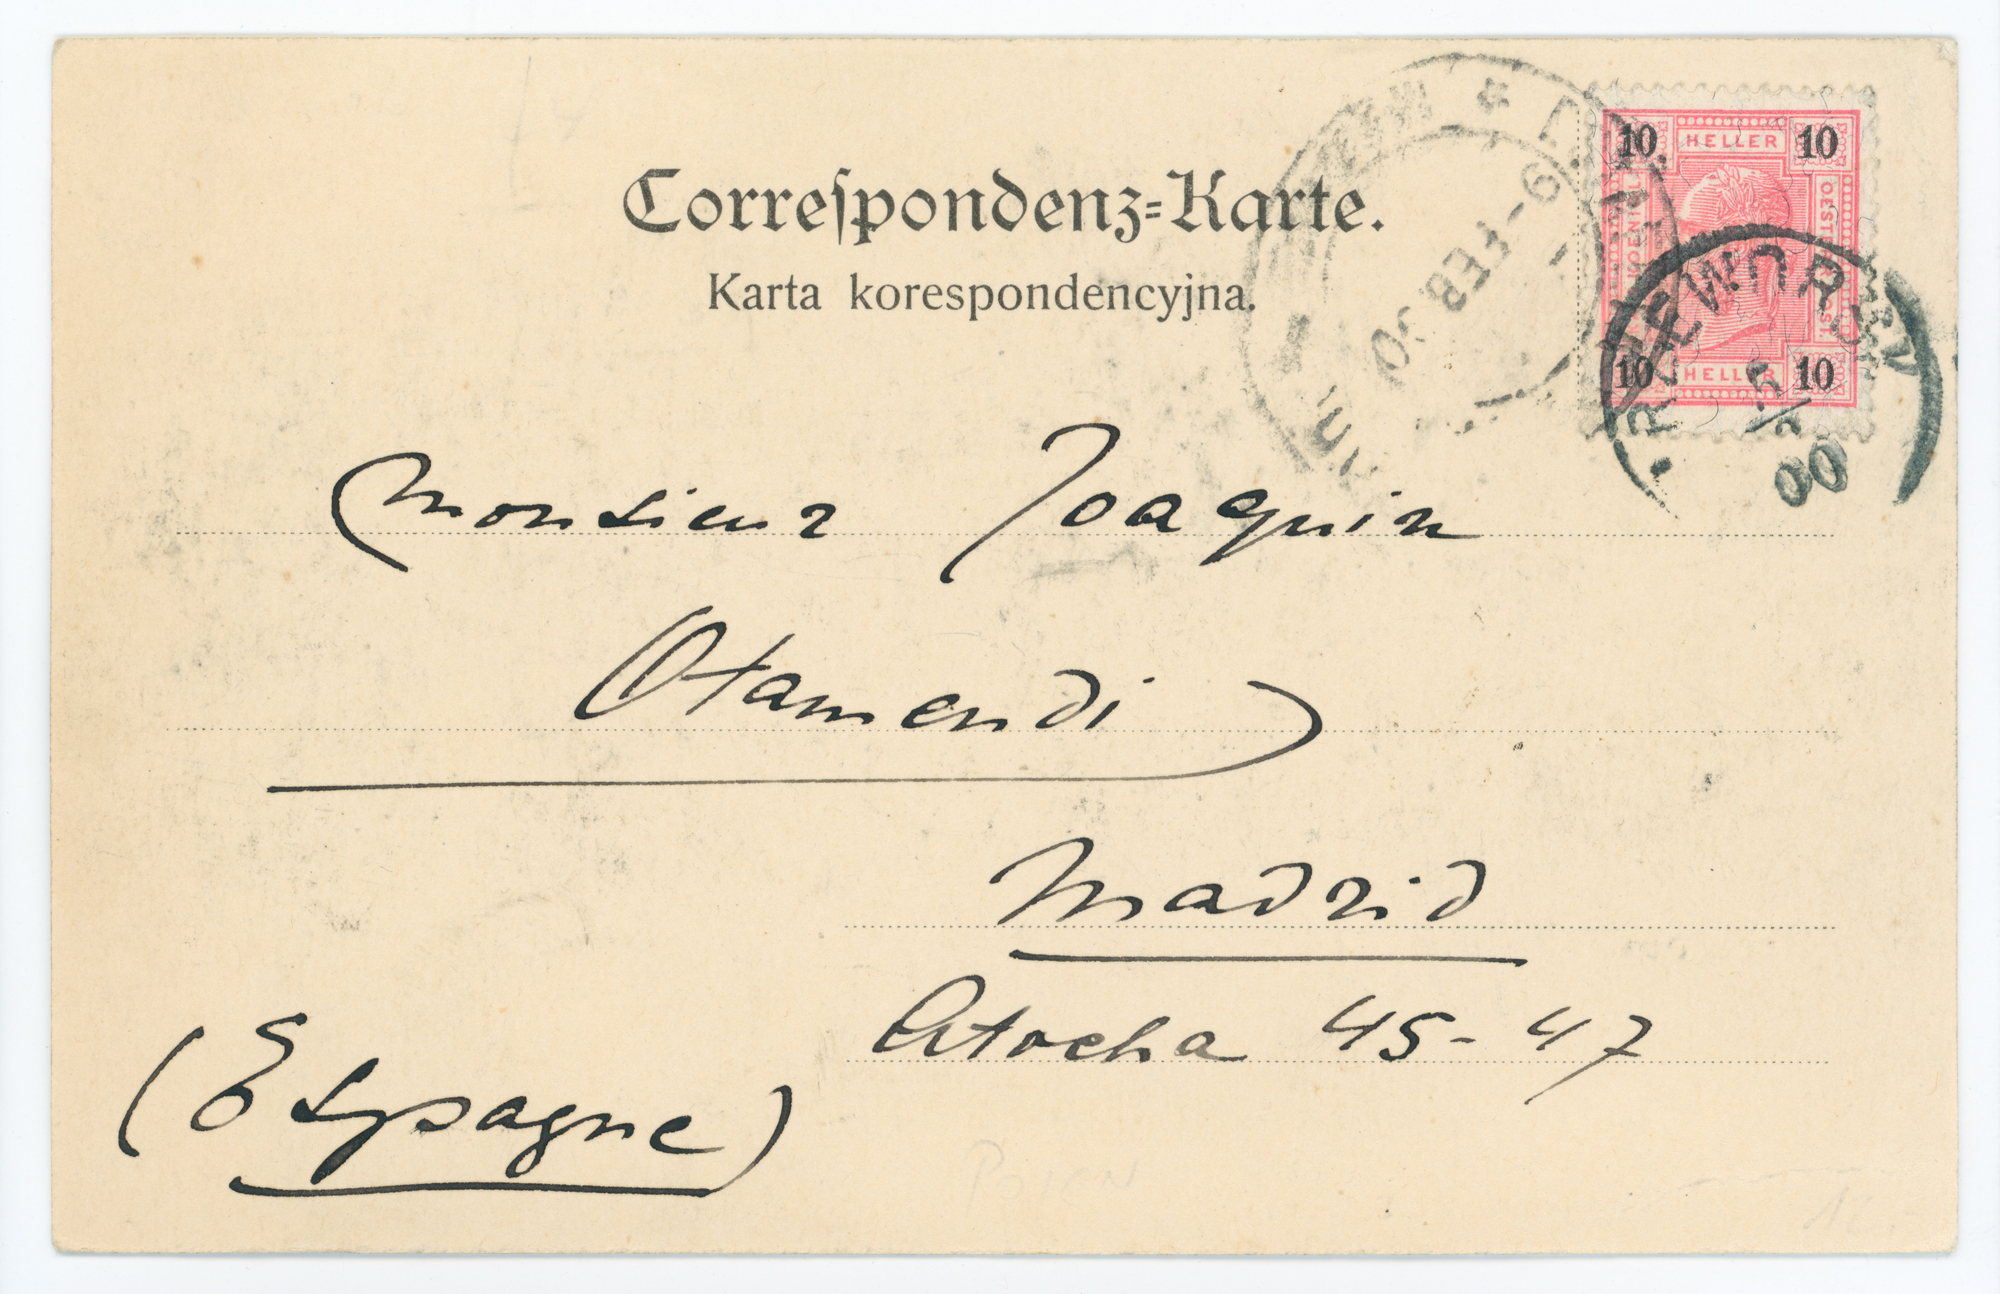 Correſpondenz=Karte.
Karta korespondencyjna.
10 HELLER 10
10 HELLER 10
PRZEWORSK
5/2
00
9-FEB
00
Monsieur Joaquin
Otamendi
Madrid
Atocha 45-47
(Espagne)